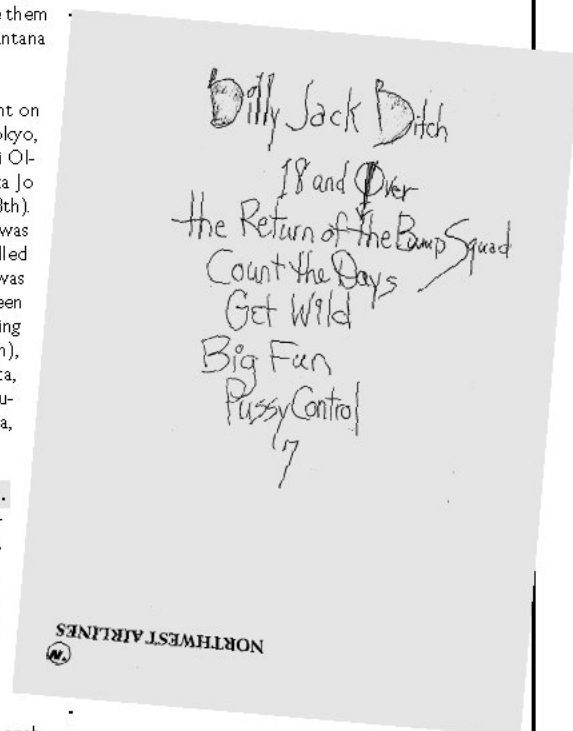 e them
ntana
nt on
okyo,
i Ol-
ta Jo
8th).
was
lled
was
een
ing
n),
ta,
u-
a,
Billy Jack Bitch
18 and Over
the Return of the Bump Squad
Count the Days
Get Wild
Big Fun
Pussy Control
7
NORTHWEST AIRLINES